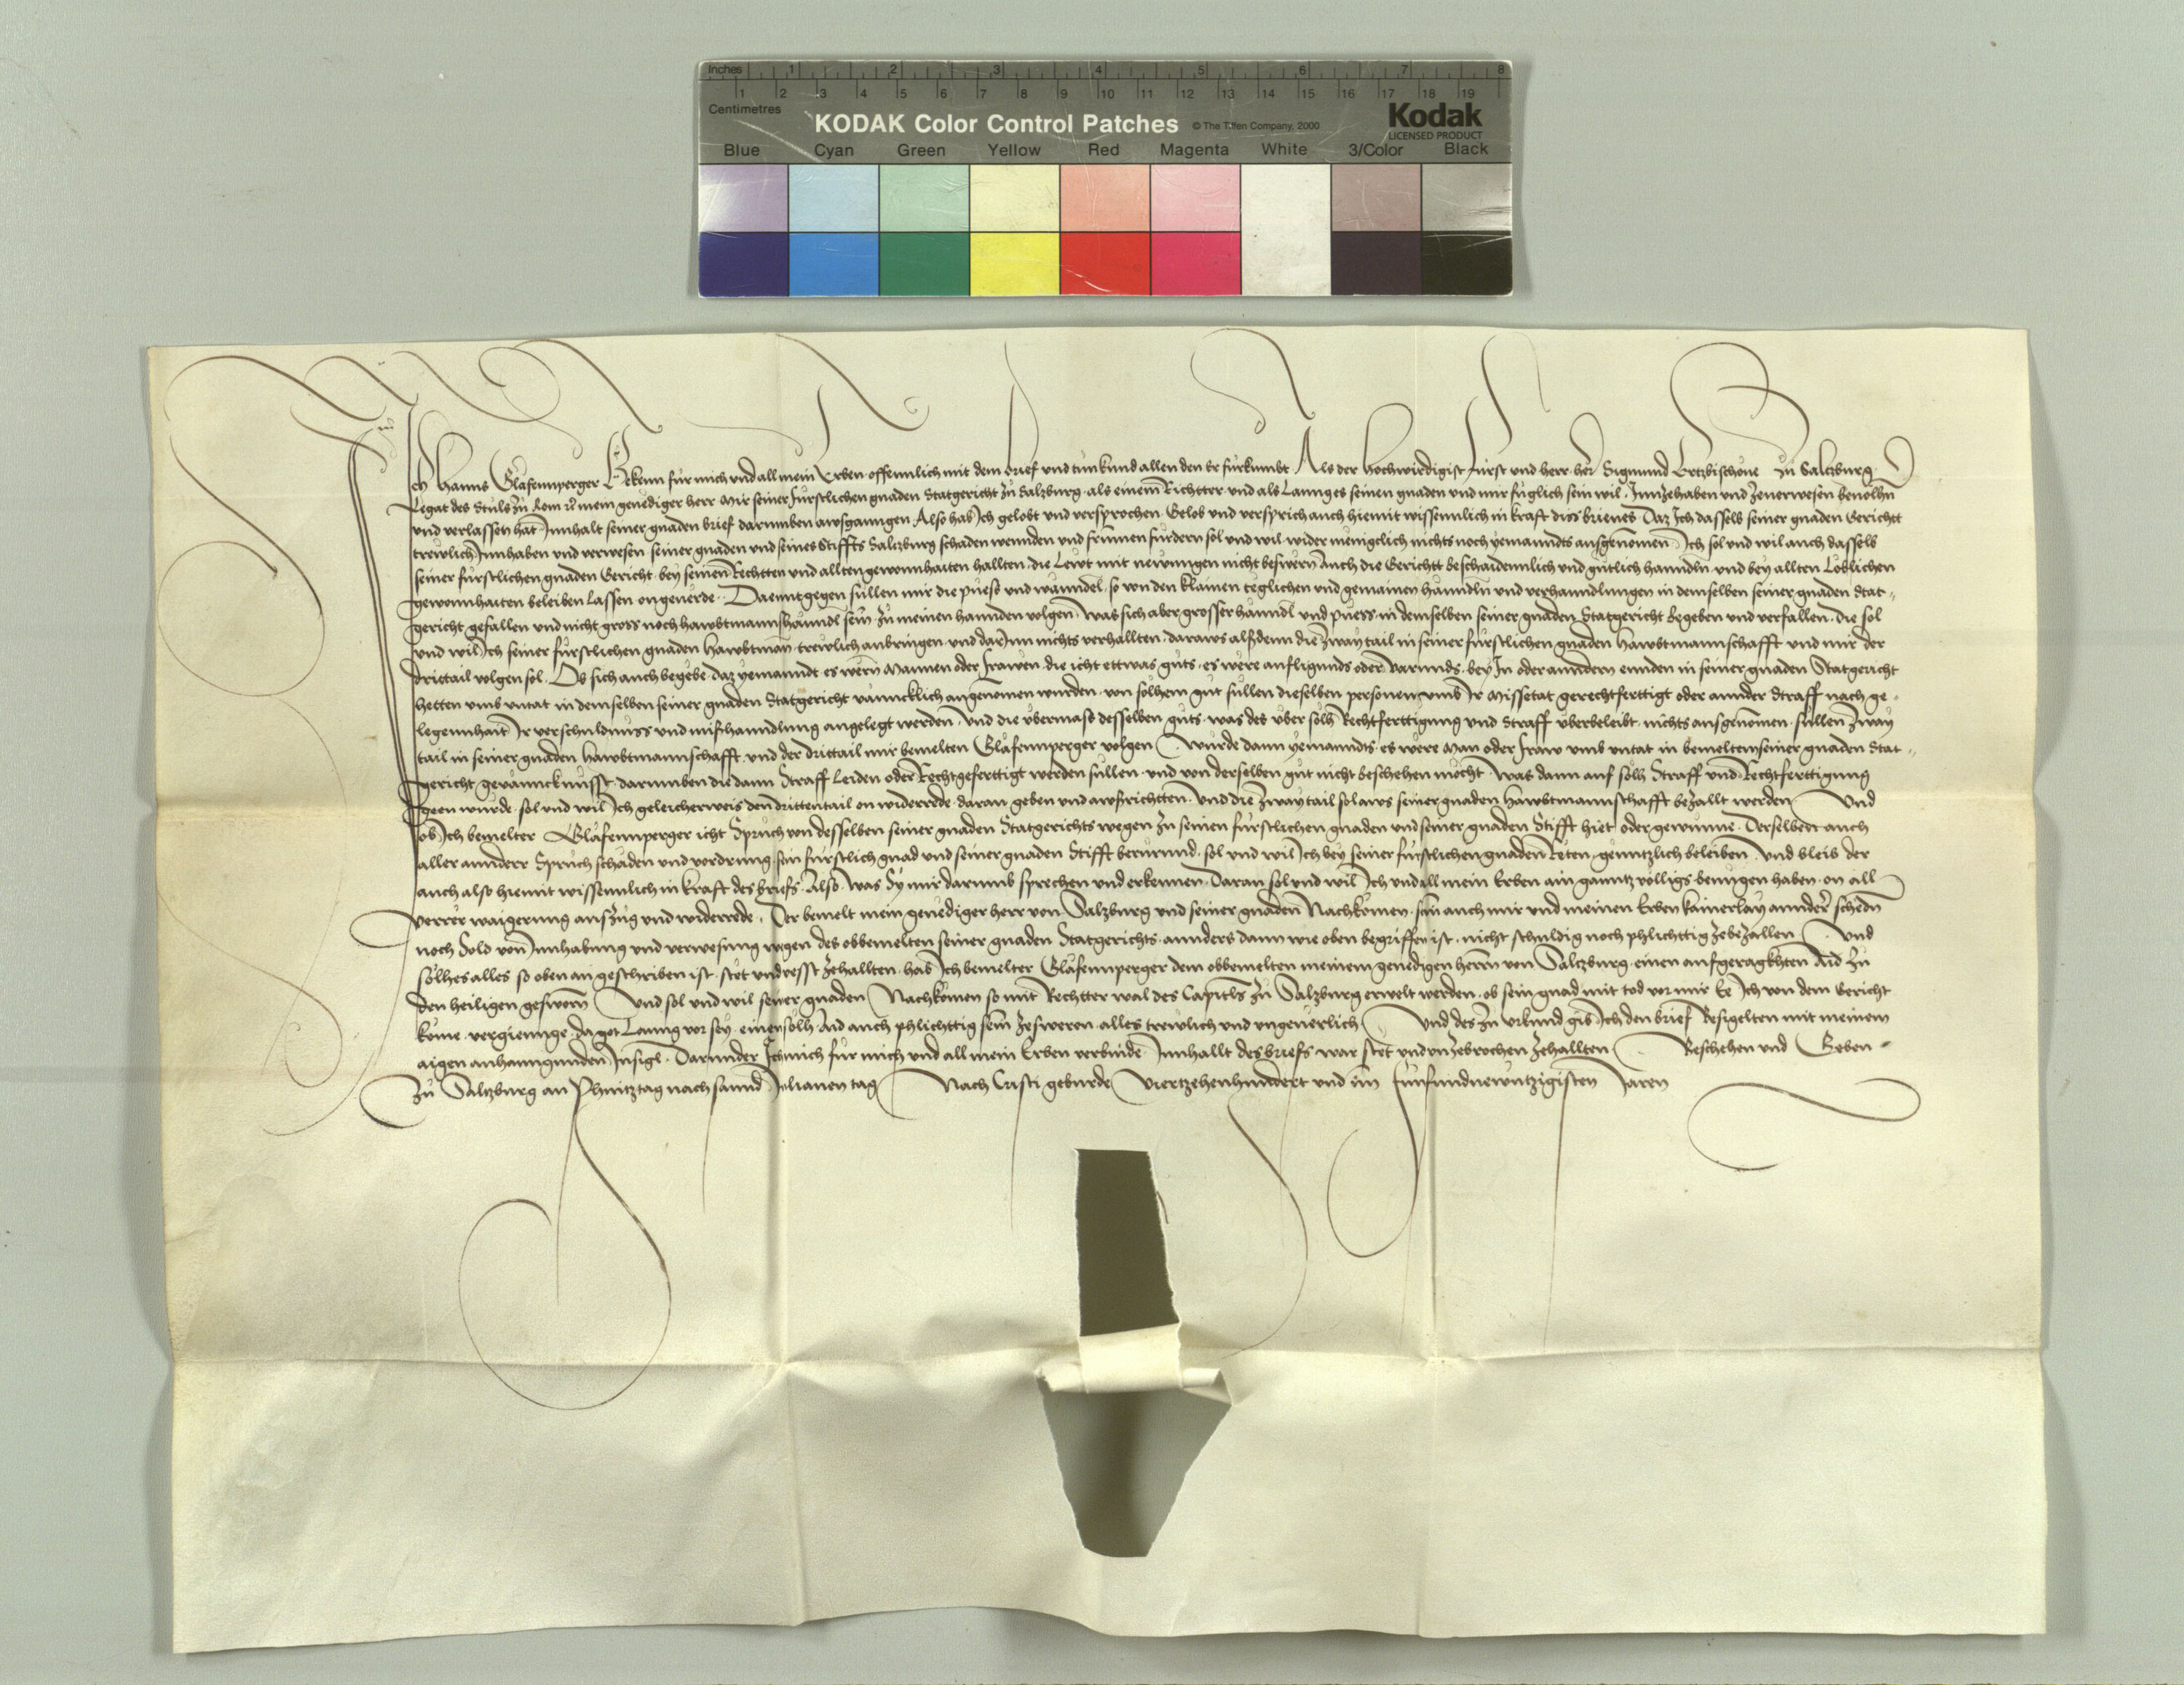 Inches 1 2 3 4 5 6 7 8
1 2 3 4 5 6 7 8 9 10 11 12 13 14 15 16 17 18 19
Centimetres
KODAK Color Control Patches © The Tiffen Company, 2000 Kodak
LICENSED PRODUCT
Blue Cyan Green Yellow Red Magenta White 3/Color Black
Ich Hanns Glåfennperger Bekenn fur mich und all mein Erben offennlich mit dem brief und tun kund allen den Er furkumbt Als der Hochwirdigist Fürst und herr her Sigmund Ertzbischoue zu Saltzburg
Legat des Stuls zu Rom mein genediger herr Mir seiner fürstlichen gnaden Statgericht zu Saltzburg als einem Richtter und als lannges seinen gnaden und mir fuglich sein wil Innzehaben und zeuerwesen beuolhn
und verlassen hat Innhalt seiner gnaden brief darumben awsganngen Also hab Ich gelobt und versprochen Gelob und versprich auch hiemit wissennlich in kraft diss brieues Daz Ich dasselb seiner gnaden Gerichtt
trewlich Innhaben und verwesen seiner gnaden und seines Stiffts Saltzburg schaden wennden und frumen furdern sol und wil wider meniclich nichts noch yemanndts ausgenomen Ich sol und wil auch dasselb
seiner furstlichen gnaden Gericht bey seinen Rechtten und allten gewonhaiten hallten die Lewt mit newungen nicht beswern Auch die Gerichtt beschaidennlich und gutlich hanndln und bey allten Loblichen
gewonhaiten beleiben lassen ongeuerde Daenntgegen sullen mir die puess und wanndel so von den klainen teglichen und gemainen hanndln und verhanndlungen in demselben seiner gnaden Stat-
gericht gefallen und nicht gross noch hawbtmannshanndl sein zu meinen hannden volgen Was sich aber grosser hanndl und puess in demselben seiner gnaden Statgericht begeben und verfallen die sol
und wil Ich seiner furstlichen gnaden Hawbtman trewlich anbringen und darInn nichts verhallten daraws alsdenn die zway tail in seiner furstlichen gnaden Hawbtmannschafft und mir der
drittail volgen sol Ob sich auch begebe daz yemanndt es wern Mannen oder frawen die icht ettwas guts es were anfligunds oder varunds bey In oder anndern ennden in seiner gnaden Statgericht
hetten umb untat in demselben seiner gnaden Statgericht vanncklich angenomen wurden von solhem gut sullen dieselben personen umb Ir Missetat gerechtferttigt oder annder Straff nach ge-
legennhait Ir verschuldnuss und misshanndlung angelegt werden und die ubermass desselben guts was des uber solh Rechtferttigung und Straff uberbeleibt nichts ausgenomen sullen zway
tail in seiner gnaden Hawbtmannschafft und der drittail mir bemelten Glåfennperger volgen Wurde dann yemanndts es were Man oder fraw umb untat in bemeltem seiner gnaden Stat-
gericht gevanncknusst darumben die dann Straff leiden oder Rechtgeferttigt werden sullen und von derselben gut nicht beschehen mocht Was dann auf solh Straff und Rechtferttigung
geen wurde sol und wil Ich geleicherweis den dritten tail on widerrede daran geben und awsrichtten und die zway tail sol aws seiner gnaden Hawbtmannschafft bezallt werden Und
ob Ich bemelter Glåfennperger icht Spruch von desselben seiner gnaden Statgerichts wegen zu seinen furstlichen gnaden und seiner gnaden Stifft hiet oder gewunne Derselben auch
aller annderr Spruch schaden und vordrung sein furstlich gnad und seiner gnaden Stifft berurund sol und wil Ich bey seiner furstlichen gnaden Reten genntzlich beleiben Und bleib der
auch also hiemit wissennlich in kraft des briefs Also Was Sy mir darumb sprechen und erkennen Daran sol und wil Ich und all mein Erben ain ganntz volligs benugen haben on all
verrer waigerung auszug und widerrede Der bemelt mein genediger herr von Saltzburg und seiner gnaden Nachkomen sein auch mir und meinen Erben kainerlay annder schedn
noch Sold von Innhabung und verwesung wegen des obbemelten seiner gnaden Statgerichts annders dann wie oben begriffen ist nicht schuldig noch phlichttig zebezallen Und
solhes alles so oben an geschriben ist stet und vesst zehallten hab Ich bemelter Glåfennperger dem obbemelten meinem genedigen herrn von Saltzburg einen aufgeragkhten Aid zu
den heiligen gesworn Und sol und wil seiner gnaden Nachkomen so mit Rechtter wal des Capitls zu Saltzburg erwelt werden ob sein gnad mit tod vor mir Ee Ich von dem Gericht
kome vergienge da got lanng vor sey einen solh Aid auch phlichttig sein zesweren alles trewlich und ungeuerlich Und des zu urkund gib Ich den brief Besigelten mit meinem
aigen anhanngunden Insigl Darunder Ich mich fur mich und all mein Erben verbinde Innhallt des briefs war stet und unzebrochen zehallten Beschehen und Geben
Zu Saltzburg an Phintztag nach sannd Julianen tag Nach Cristi geburde Viertzehenhundert und im funfundnewntzigisten Jaren